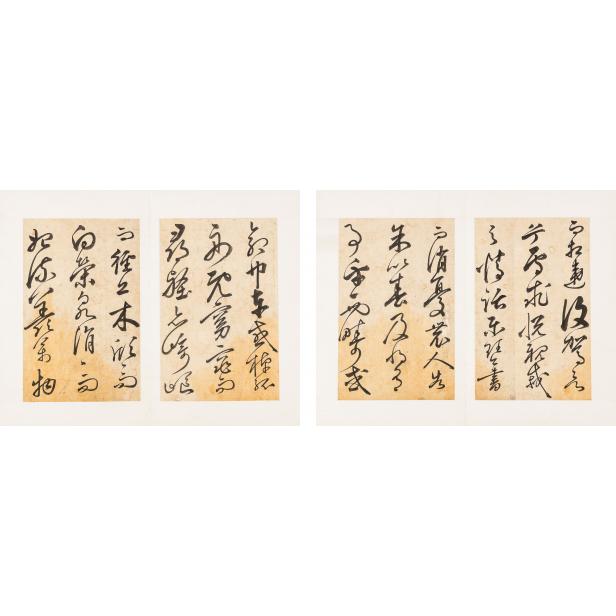 而相違復駕言
兮焉求悅親戚
之情話樂琴書
以消憂農人告
余以春及將有
事乎西疇或
命巾車或棹孤
舟既窈窕而
尋壑亦崎嶇
而經丘木欣欣而
向榮泉涓涓而
始流羨萬物